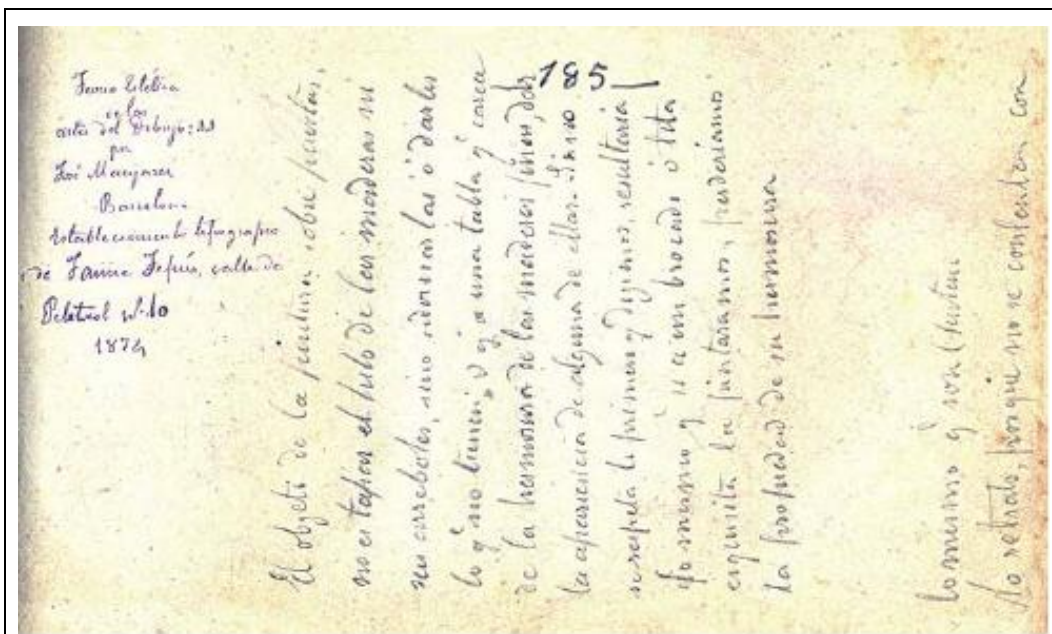 en las
artes del Dibujo:
por
José Manjarrés
Barcelona
Establecimiento tipográfico
de Jaime Jepús, calle de
Petritxol nº 10
1874
185
El objeto de la pintura sobre
no es tapar el todo de las maderas ni
sus arreboles, sino adornarlas o darles
lo q no tienen, o q a una tabla q carece
de la hermosura de las maderas finas, dar
la apariencia de alguna de ellas. Si no
se respeta lo primero q dijimos, resultaria
lo mismo q si a un brocado ó tela
esquisita la pintaramos, perderiamos
la propiedad de su hermosura
Lo mismo q
lo retrato, porque no se confundan con